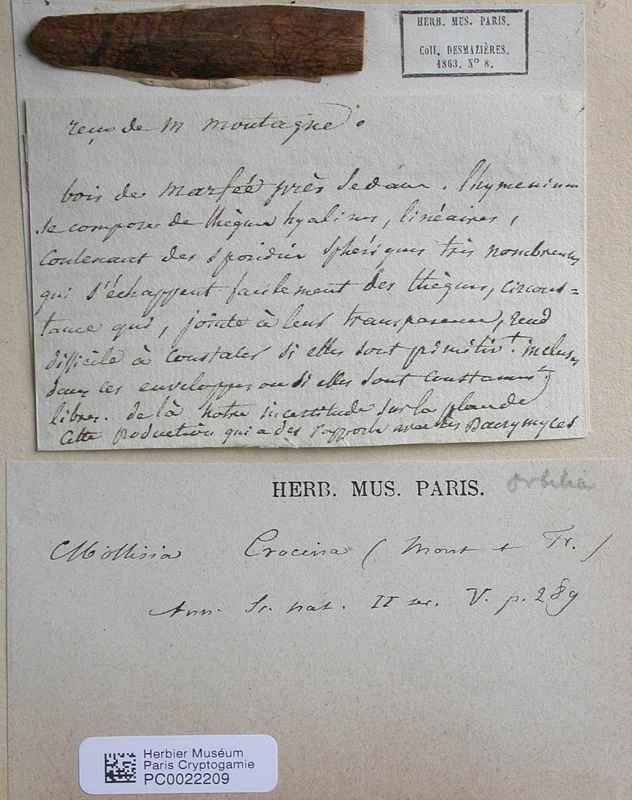 HERB. MUS. PARIS.
Coll. DESMAZIÈRES.
1863, N° 8.
reçu de M Montagne.
bois de Marfée près Sedan. l'hymenium
se compose de thèques hyalines, linéaires,
contenant des sporidies sphériques très nombreuses
qui s'échappent facilement des thèques, circons=
tance qui, jointe à leur transparence, rend
difficile à constater si elles sont primitivt. incluses
dans ces enveloppes ou si elles sont constamment
libres. de là notre incertitude sur la place de
cette production qui a des rapports avec les Dacrymyces
HERB. MUS. PARIS.
Orbilia
Mollisia Crocina (Mont & Fr.)
Ann. Sc. nat. II ser. V. p. 289
Herbier Muséum
Paris Cryptogamie
PC0022209